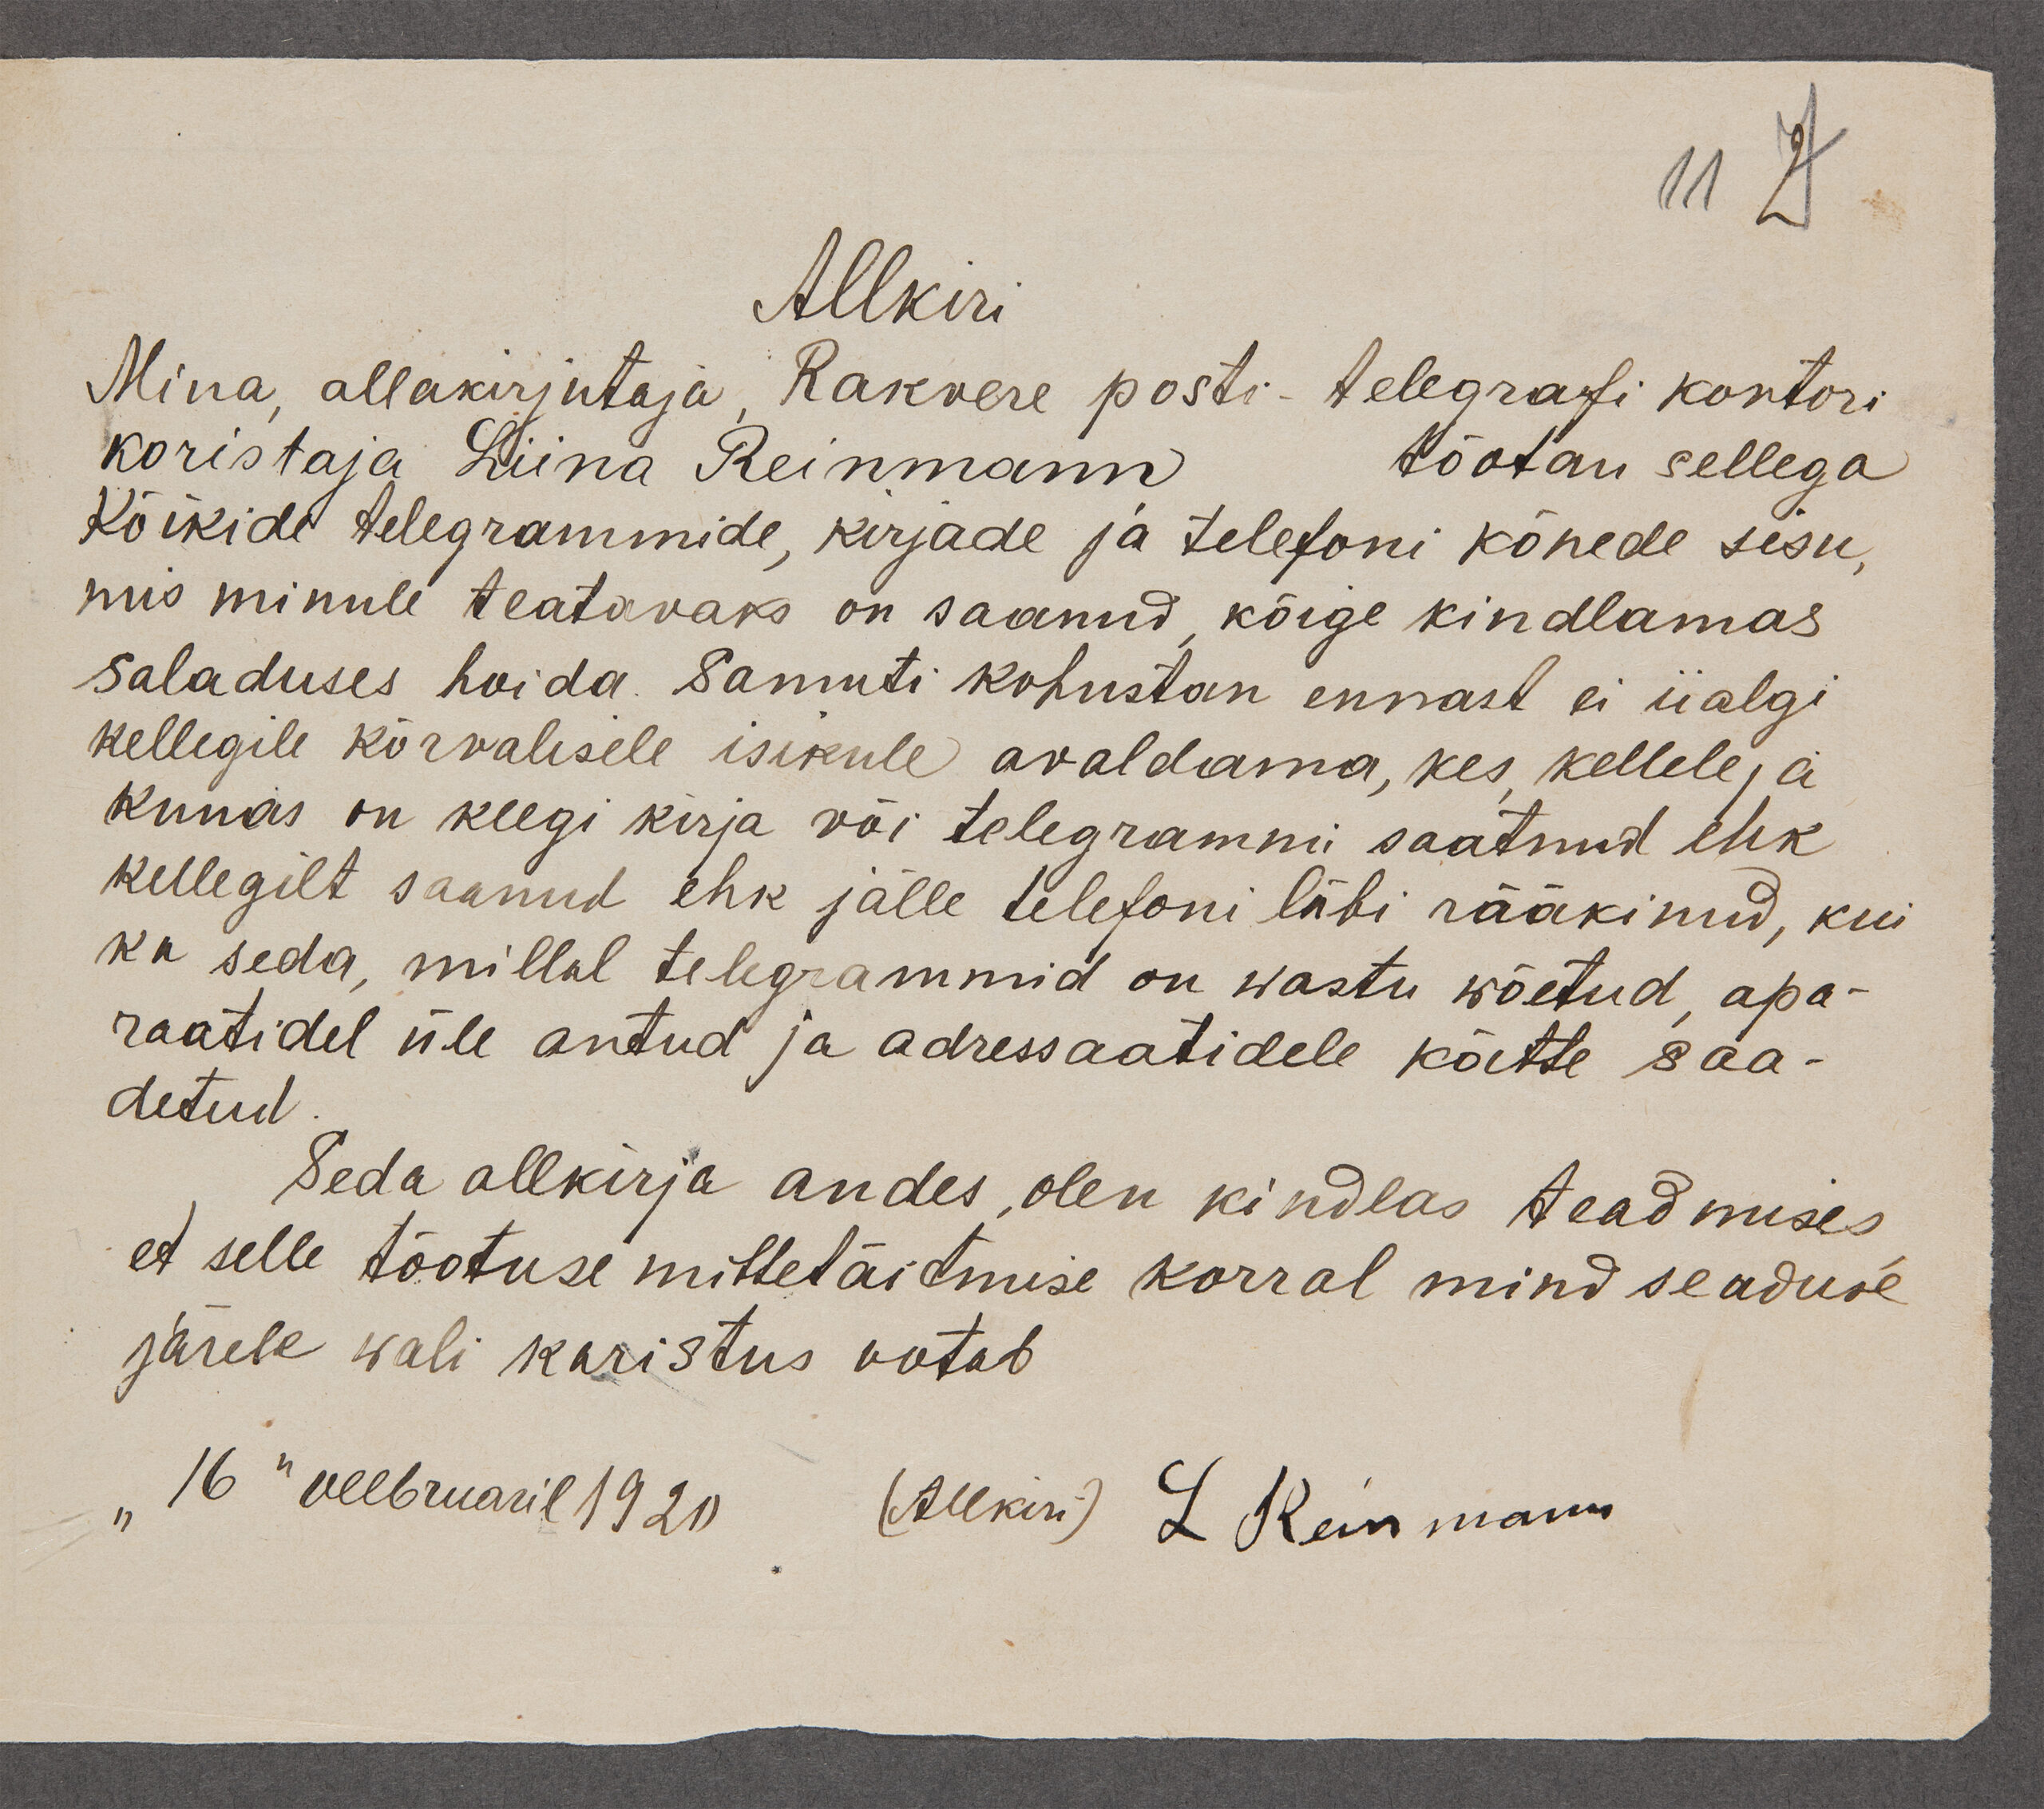 11 2
Allkiri
Mina, allakirjutaja, Rakvere posti-telegrafi kontori
koristaja Liina Reinmann tõotan sellega
Kõikide telegrammide, kirjade ja telefoni kõnede sisu,
mis minule teatavaks on saanud, kõige kindlamas
saladuses hoida. Samuti kohustan ennast ei iialgi
kellegile kõrvalisele isikule avaldama, kes, kellele ja
kunas on keegi kirja või telegrammi saatnud ehk
kellegilt saanud ehk jälle telefoni läbi rääkinud, kui
ka seda, millal telegrammid on wastu wõetud, apa-
raatidel üle antud ja adressaatidele kätte saa-
detud.
Seda allkirja andes, olen kindlas teadmises,
et selle tõotuse mittetäitmise korral mind seaduse
järele wali karistus ootab
„16" veebruaril 1920 (Allkiri) L Reinmann